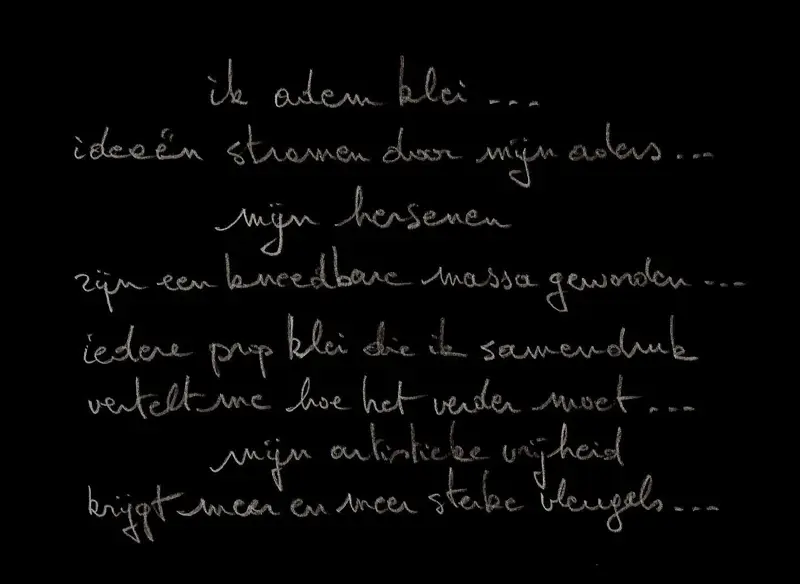 ik adem klei ...
ideeën stromen door mijn aders ...
mijn hersenen
zijn een kneedbare massa geworden ...
iedere prop klei die ik samendruk
vertelt me hoe het verder moet ...
mijn artistieke vrijheid
krijgt meer en meer sterke vleugels ...